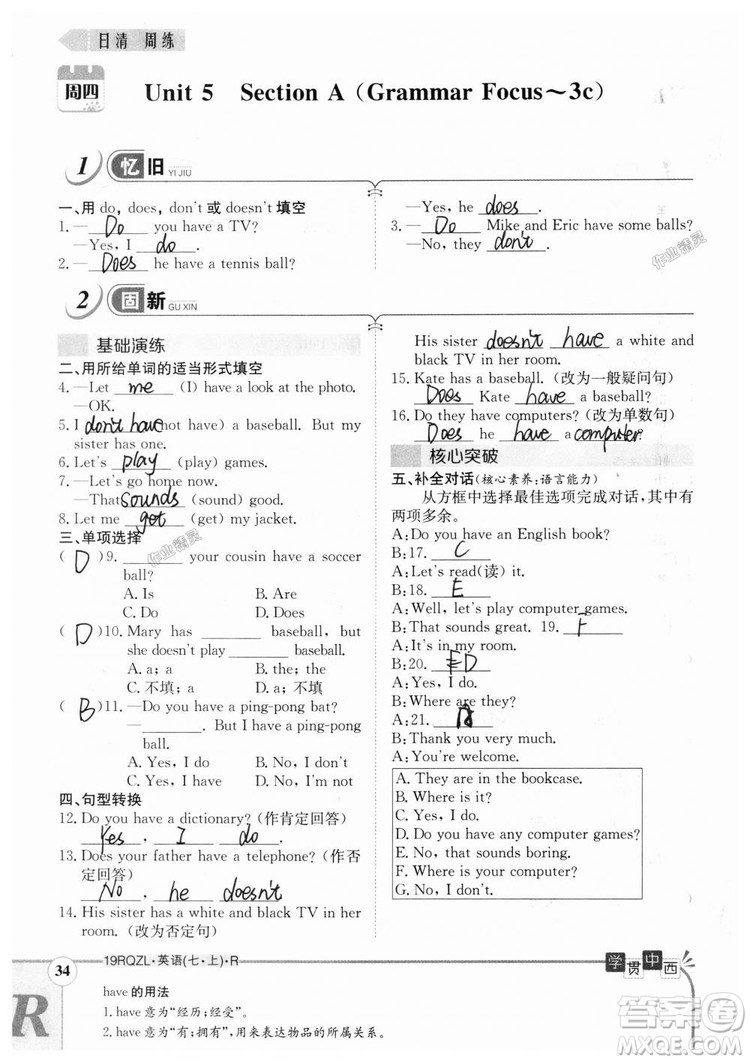 日清 周练
周四 Unit 5 Section A（Grammar Focus～3c）
1 忆旧 YI JIU
一、用 do, does, don't 或 doesn't 填空
1. — Do you have a TV?
—Yes, I do.
2. — Does he have a tennis ball?
—Yes, he does.
3. — Do Mike and Eric have some balls?
—No, they don't.
2 固新 GU XIN
基础演练
二、用所给单词的适当形式填空
4. —Let me (I) have a look at the photo.
—OK.
5. I don't have (not have) a baseball. But my
sister has one.
6. Let's play (play) games.
7. —Let's go home now.
—That sounds (sound) great.
8. Let me get (get) my jacket.
三、单项选择
( D )9. ________ your cousin have a soccer
ball?
A. Is B. Are
C. Do D. Does
( D )10. Mary has ________ baseball, but
she doesn't play ________ baseball.
A. a; a B. the; the
C. 不填; a D. a; 不填
( B )11. —Do you have a ping-pong bat?
—________. But I have a ping-pong
ball.
A. Yes, I do B. No, I don't
C. Yes, I have D. No, I'm not
四、句型转换
12. Do you have a dictionary? (作肯定回答)
Yes, I do.
13. Does your father have a telephone? (作否
定回答)
No, he doesn't.
14. His sister has a white and black TV in her
room. (改为否定句)
His sister doesn't have a white and
black TV in her room.
15. Kate has a baseball. (改为一般疑问句)
Does Kate have a baseball?
16. Do they have computers? (改为单数句)
Does he have a computer?
核心突破
五、补全对话(核心素养:语言能力)
从方框中选择最佳选项完成对话,其中有
两项多余。
A: Do you have an English book?
B: 17. C
A: Let's read(读) it.
B: 18. E
A: Well, let's play computer games.
B: That sounds great. 19. F
A: It's in my room.
B: 20. D
A: Yes, I do.
B: Where are they?
A: 21. A
B: Thank you very much.
A: You're welcome.
A. They are in the bookcase.
B. Where is it?
C. Yes, I do.
D. Do you have any computer games?
E. No, that sounds boring.
F. Where is your computer?
G. No, I don't.
34 19RQZL·英语(七·上)·R
学贯中西
R
have 的用法
1. have 意为“经历;经受”。
2. have 意为“有;拥有”,用来表达物品的所属关系。
作业精灵
作业精灵
答案圈
MXQE.COM